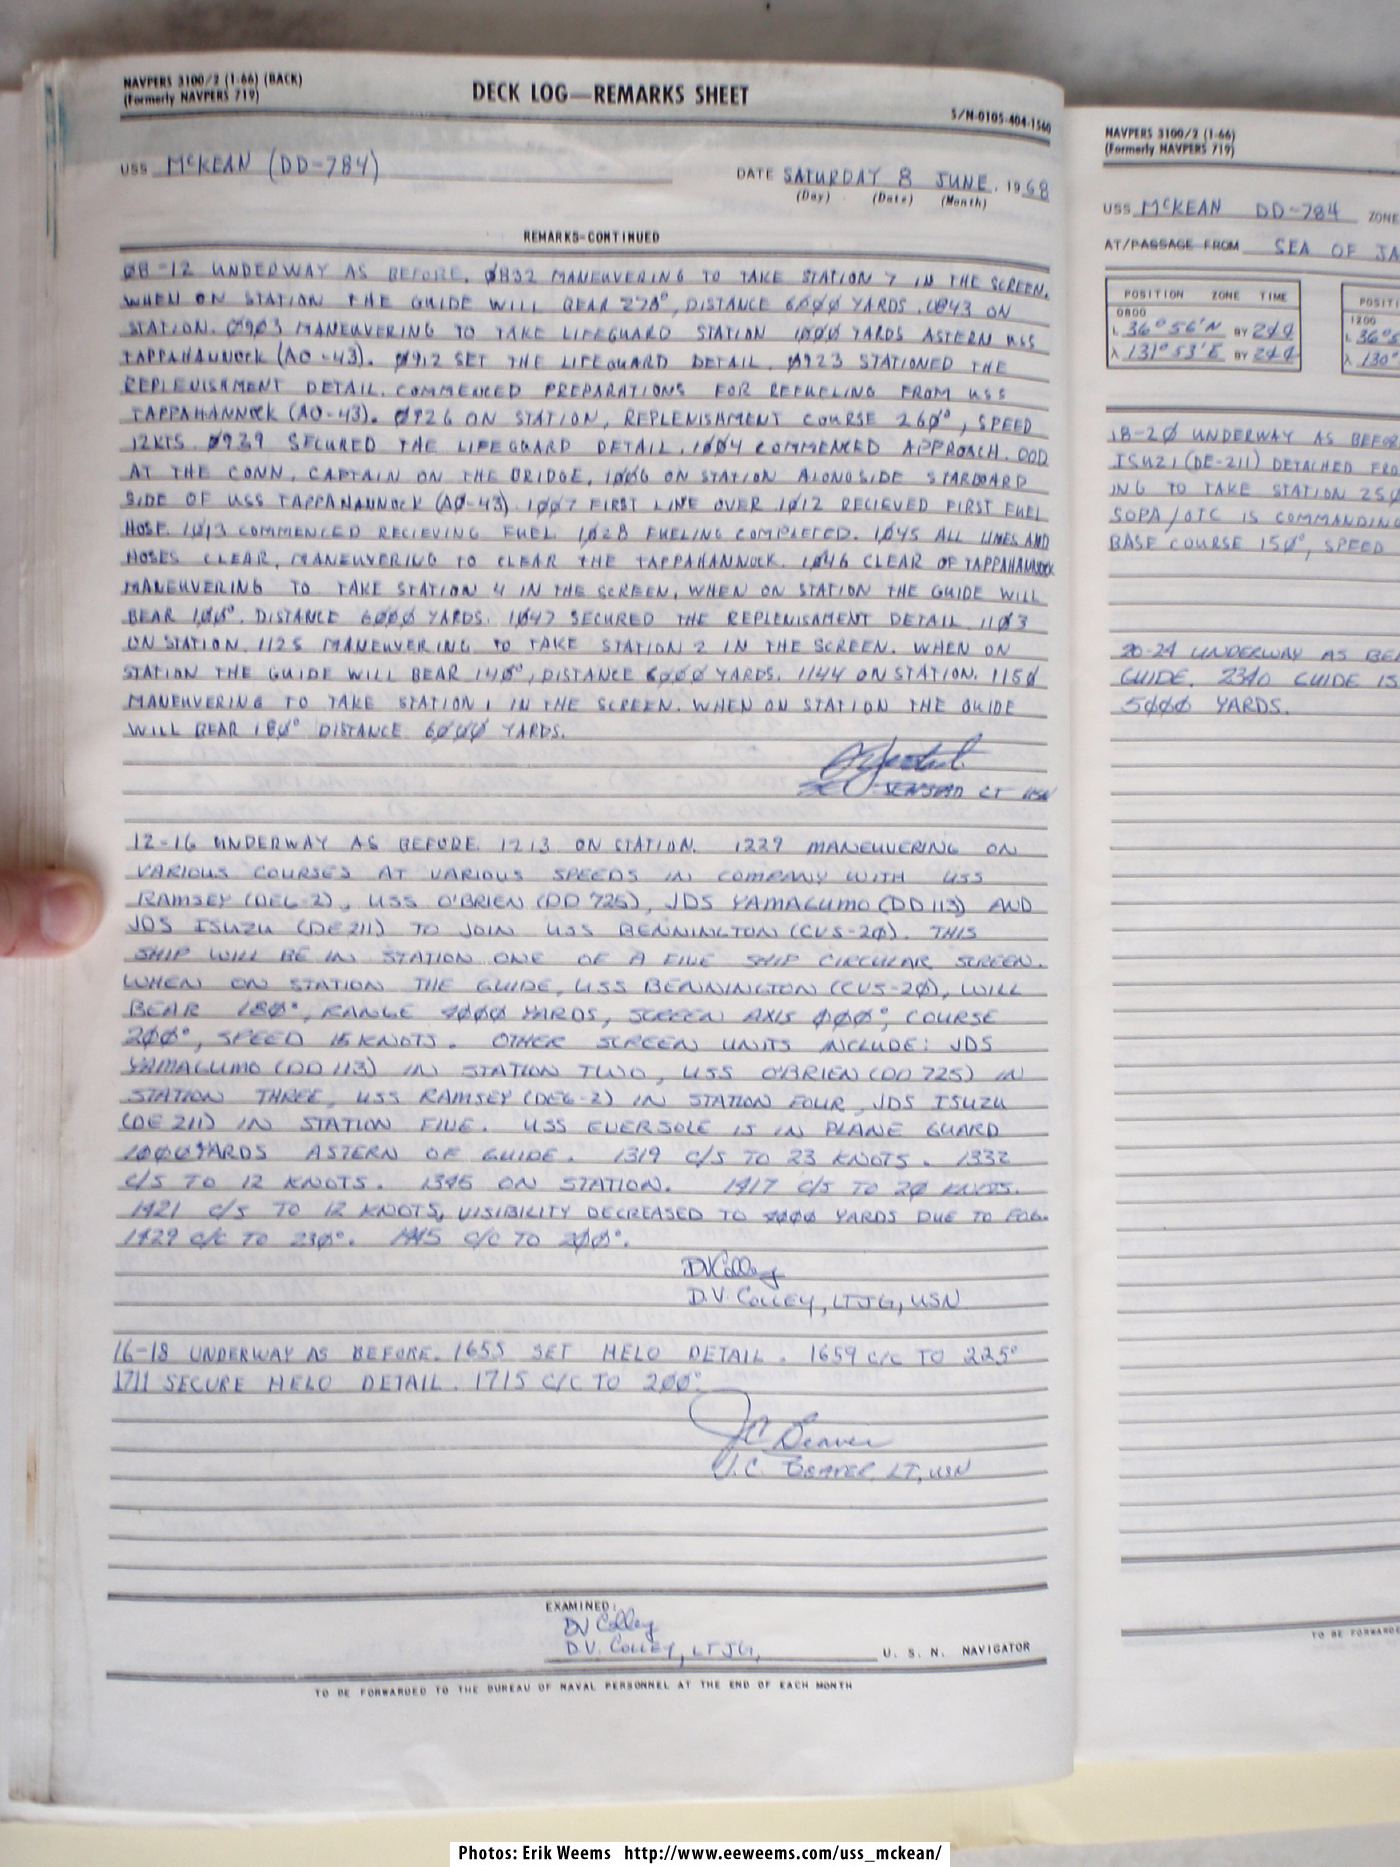 NAVPERS 3100/2 (1-66) (BACK)
(Formerly NAVPERS 719)
DECK LOG—REMARKS SHEET
S/N-0105-404-1560
USS McKEAN (DD-784)
DATE SATURDAY 8 JUNE, 1968
(Day) (Date) (Month)
REMARKS-CONTINUED
08-12 UNDERWAY AS BEFORE. 0832 MANEUVERING TO TAKE STATION 7 IN THE SCREEN.
WHEN ON STATION THE GUIDE WILL BEAR 278°, DISTANCE 6000 YARDS. 0843 ON
STATION. 0903 MANEUVERING TO TAKE LIFEGUARD STATION 1000 YARDS ASTERN USS
TAPPAHANNOCK (AO-43). 0912 SET THE LIFEGUARD DETAIL. 0923 STATIONED THE
REPLENISHMENT DETAIL. COMMENCED PREPARATIONS FOR REFUELING FROM USS
TAPPAHANNOCK (AO-43). 0926 ON STATION, REPLENISHMENT COURSE 260°, SPEED
12KTS. 0939 SECURED THE LIFEGUARD DETAIL. 1004 COMMENCED APPROACH. OOD
AT THE CONN, CAPTAIN ON THE BRIDGE. 1006 ON STATION ALONGSIDE STARBOARD
SIDE OF USS TAPPAHANNOCK (AO-43). 1007 FIRST LINE OVER 1012 RECIEVED FIRST FUEL
HOSE. 1013 COMMENCED RECIEVING FUEL 1028 FUELING COMPLETED. 1045 ALL LINES AND
HOSES CLEAR, MANEUVERING TO CLEAR THE TAPPAHANNOCK. 1046 CLEAR OF TAPPAHANNOCK
MANEUVERING TO TAKE STATION 4 IN THE SCREEN, WHEN ON STATION THE GUIDE WILL
BEAR 100°. DISTANCE 6000 YARDS. 1047 SECURED THE REPLENISHMENT DETAIL. 1103
ON STATION. 1125 MANEUVERING TO TAKE STATION 2 IN THE SCREEN. WHEN ON
STATION THE GUIDE WILL BEAR 140°, DISTANCE 6000 YARDS. 1144 ON STATION. 1150
MANEUVERING TO TAKE STATION 1 IN THE SCREEN. WHEN ON STATION THE GUIDE
WILL BEAR 180° DISTANCE 6000 YARDS.
LT USN
12-16 UNDERWAY AS BEFORE. 1213 ON STATION. 1229 MANEUVERING ON
VARIOUS COURSES AT VARIOUS SPEEDS IN COMPANY WITH USS
RAMSEY (DEG-2), USS O'BRIEN (DD 725), JDS YAMAGUMO (DD 113) AND
JDS ISUZU (DE 211) TO JOIN USS BENNINGTON (CVS-20). THIS
SHIP WILL BE IN STATION ONE OF A FIVE SHIP CIRCULAR SCREEN.
WHEN ON STATION THE GUIDE, USS BENNINGTON (CVS-20), WILL
BEAR 180°, RANGE 4000 YARDS, SCREEN AXIS 000°, COURSE
200°, SPEED 15 KNOTS. OTHER SCREEN UNITS INCLUDE: JDS
YAMAGUMO (DD 113) IN STATION TWO, USS O'BRIEN (DD 725) IN
STATION THREE, USS RAMSEY (DEG-2) IN STATION FOUR, JDS ISUZU
(DE 211) IN STATION FIVE. USS EVERSOLE IS IN PLANE GUARD
1000 YARDS ASTERN OF GUIDE. 1319 C/S TO 23 KNOTS. 1332
C/S TO 12 KNOTS. 1345 ON STATION. 1417 C/S TO 20 KNOTS.
1421 C/S TO 12 KNOTS, VISIBILITY DECREASED TO 4000 YARDS DUE TO FOG.
1429 C/C TO 230°. 1445 C/C TO 200°.
DVColley
D.V. COLLEY, LTJG, USN
16-18 UNDERWAY AS BEFORE. 1655 SET HELO DETAIL. 1659 C/C TO 225°
1711 SECURE HELO DETAIL. 1715 C/C TO 200°.
JC Beaver
J.C. BEAVER, LT, USN
EXAMINED:
DV Colley
D.V. COLLEY, LTJG,
U. S. N. NAVIGATOR
TO BE FORWARDED TO THE BUREAU OF NAVAL PERSONNEL AT THE END OF EACH MONTH
NAVPERS 3100/2 (1-66)
(Formerly NAVPERS 719)
USS McKEAN DD-784 ZONE
AT/PASSAGE FROM SEA OF JA
POSITION ZONE TIME
0800
L 36° 56'N BY
λ 131° 53'E BY
POSITI
1200
L 36°5
λ 130°
18-20 UNDERWAY AS BEFOR
ISUZI (DE-211) DETACHED FRO
ING TO TAKE STATION 250
SOPA/OTC IS COMMANDING
BASE COURSE 150°, SPEED
20-24 UNDERWAY AS BE
GUIDE. 2340 GUIDE IS
5000 YARDS.
TO BE FORWARDE
Photos: Erik Weems http://www.eeweems.com/uss_mckean/